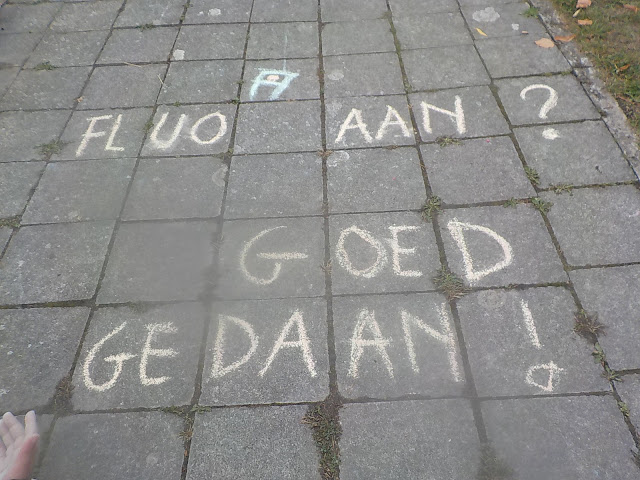 FLUO AAN?
GOED
GEDAAN!